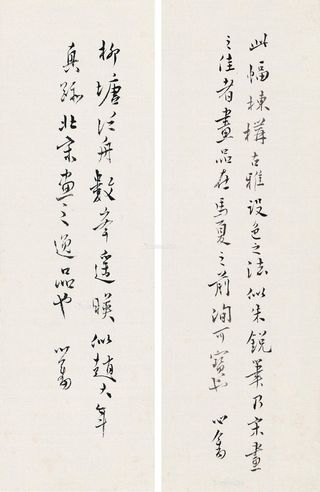 此幅棟構古雅設色之法似朱銳筆乃宋畫
之佳者畫品在馬夏之前洵可寶也 心畬
柳塘泛舟數峯遙暎似趙大年
真跡北宋畫之逸品也 心畬